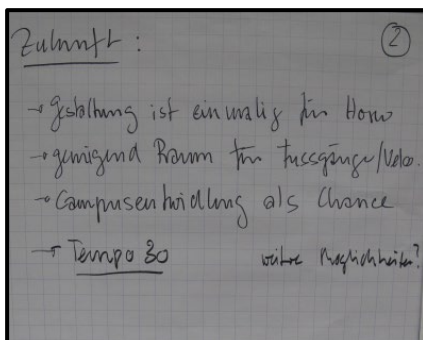 Zukunft : 2
→ Gestaltung ist einmalig für Horw
→ genügend Raum für Fussgänger/Velo.
→ Campusentwicklung als Chance
→ Tempo 30 weitere Möglichkeiten?